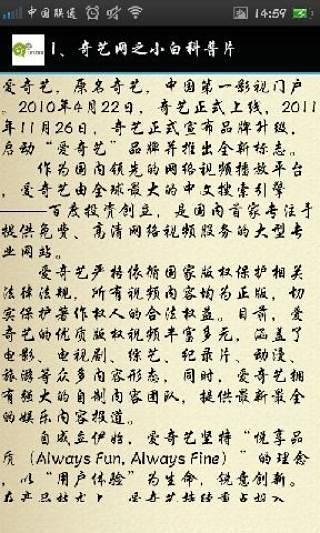 中国联通
14:59
1、奇艺网之小白科普片
爱奇艺，原名奇艺，中国第一影视门户
。2010年4月22日，奇艺正式上线，2011
年11月26日，奇艺正式宣布品牌升级，
启动“爱奇艺”品牌并推出全新标志。
作为国内领先的网络视频播放平台
，爱奇艺由全球最大的中文搜索引擎
——百度投资创立，是国内首家专注于
提供免费、高清网络视频服务的大型专
业网站。
爱奇艺严格依循国家版权保护相关
法律法规，所有视频内容均为正版，切
实保护著作权人的合法权益。目前，爱
奇艺的优质版权视频丰富多元，涵盖了
电影、电视剧、综艺、纪录片、动漫、
旅游等众多内容形态，同时，爱奇艺拥
有强大的自制内容团队，提供最新最全
的娱乐内容报道。
自成立伊始，爱奇艺坚持“悦享品
质（Always Fun, Always Fine）”的理念
，以“用户体验”为生命，锐意创新。
在产品技术上，爱奇艺持续重点投入